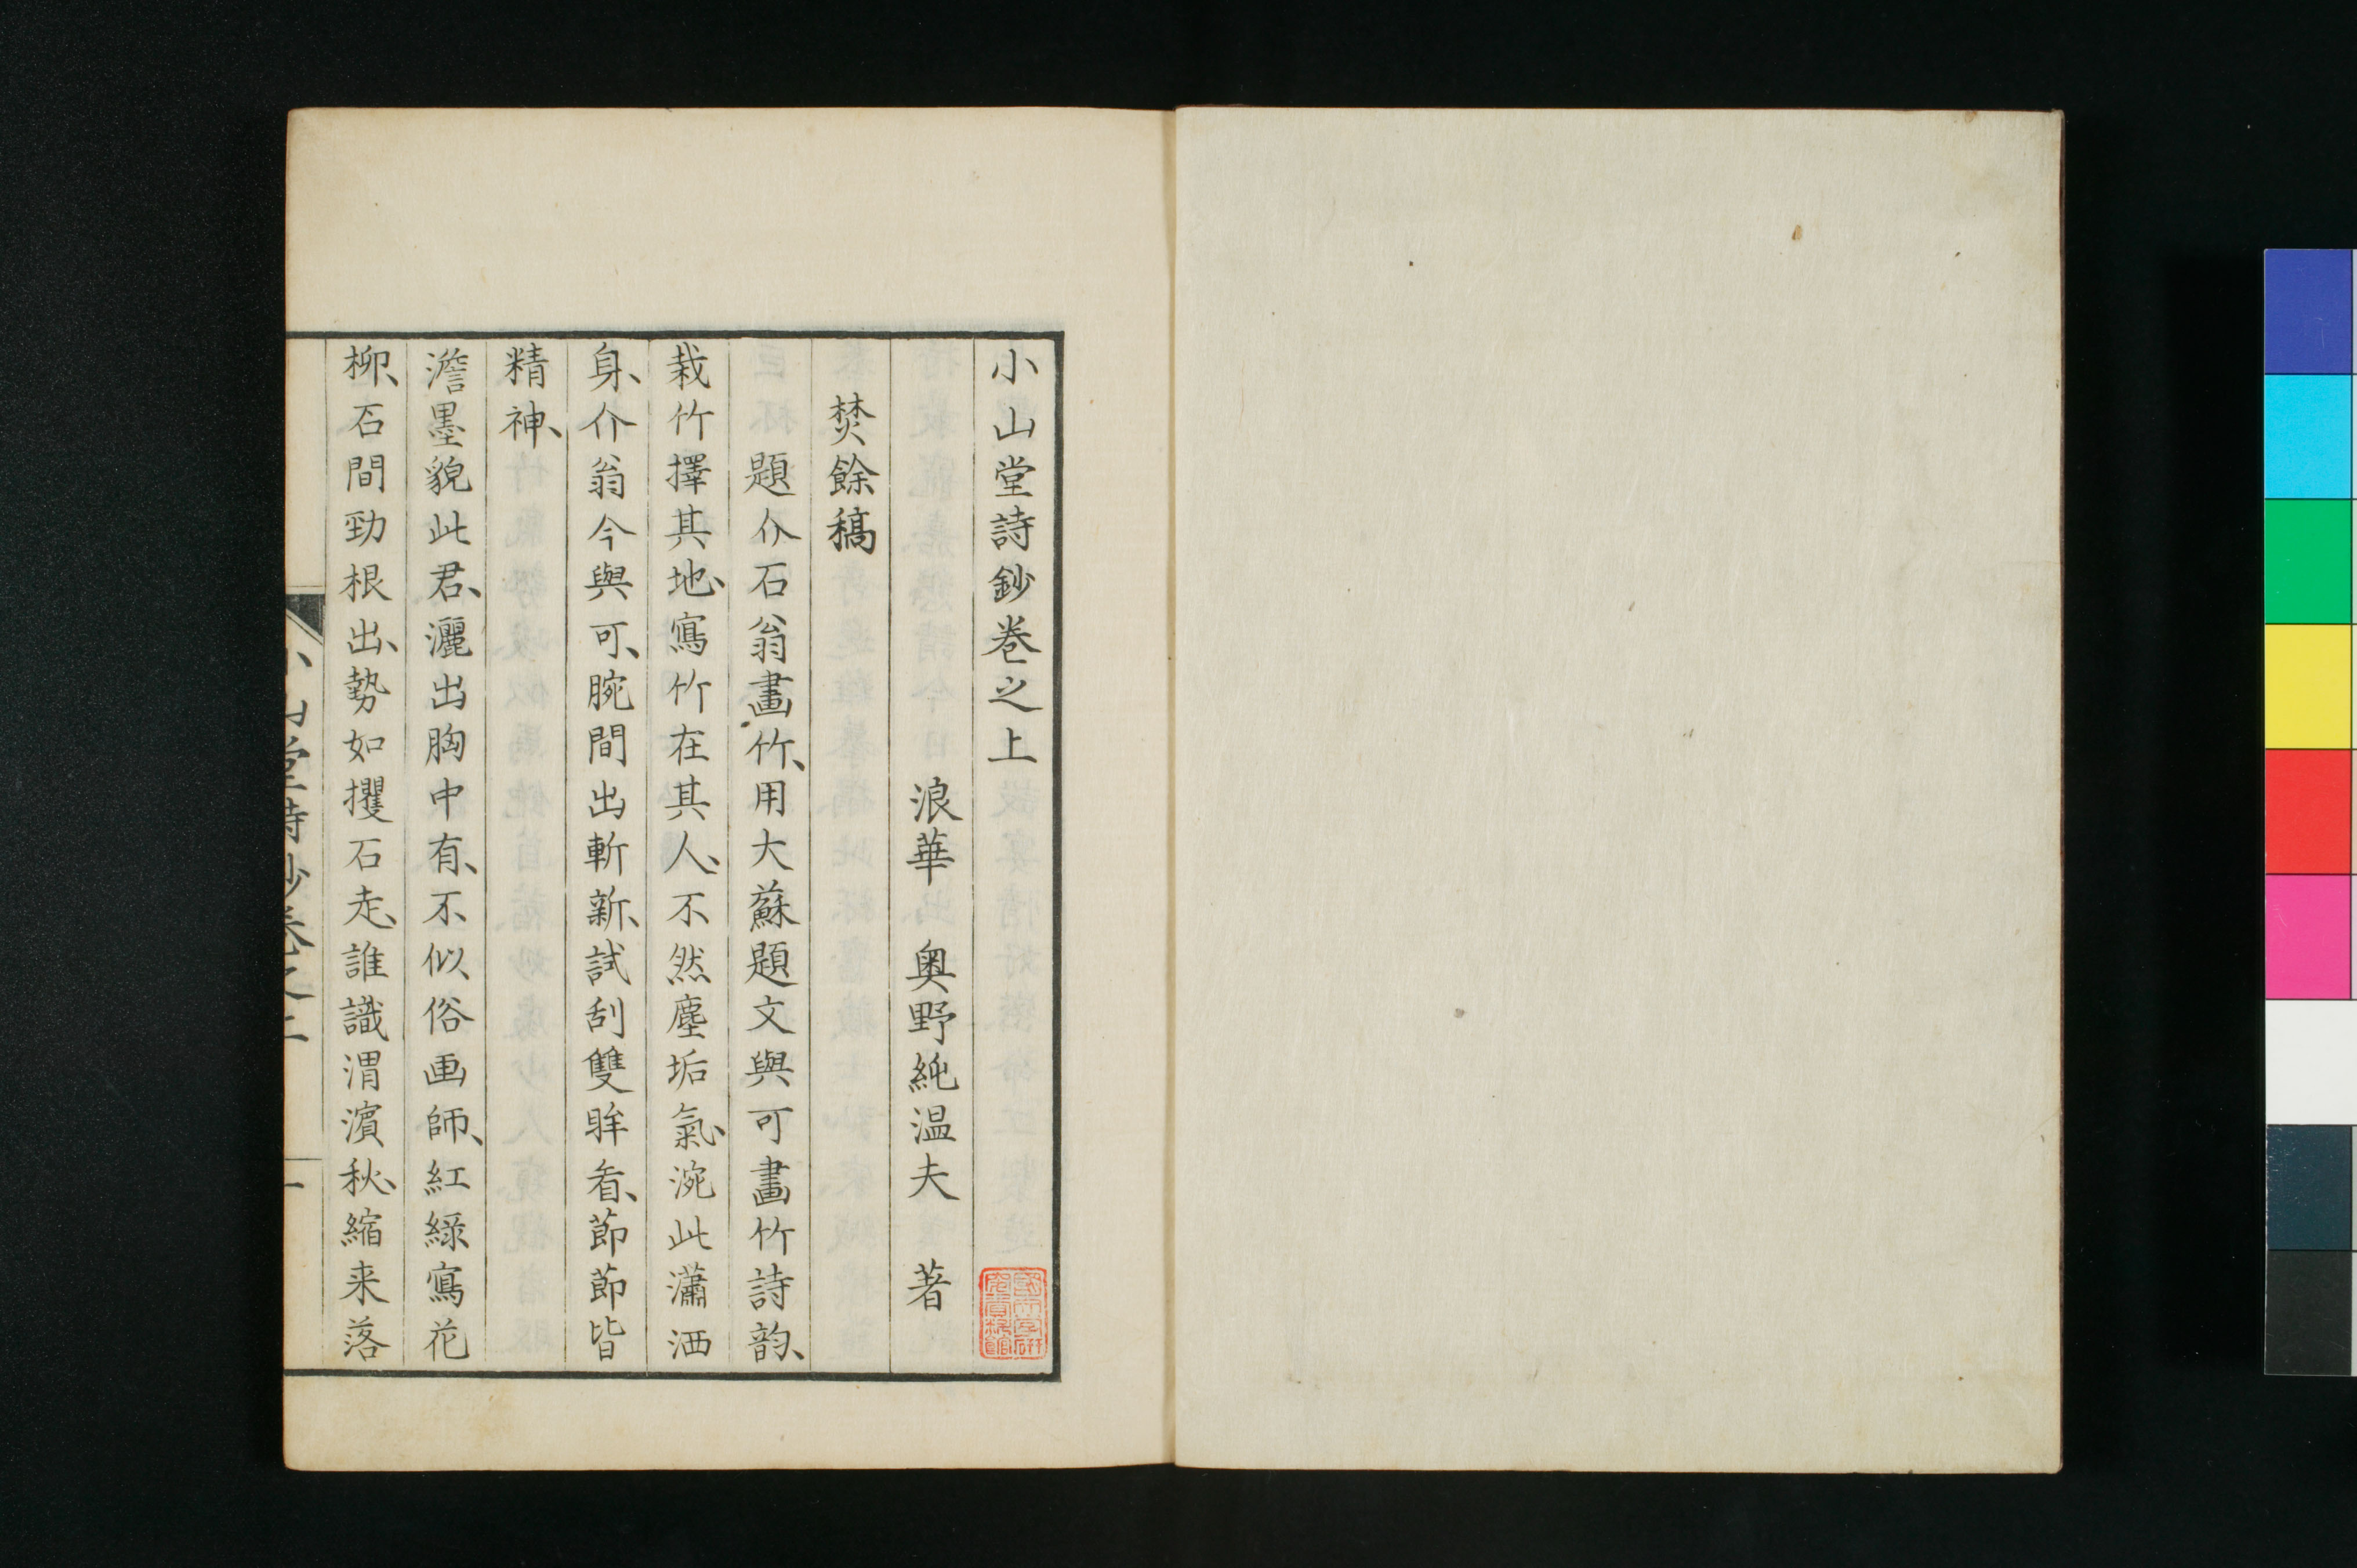 小山堂詩鈔巻之上
浪華 奥野純温夫 著
焚餘稿
題介石翁畫竹、用大蘇題文與可畫竹詩韵、
栽竹擇其地、寫竹在其人、不然塵垢氣、涴此瀟洒
身、介翁今與可、腕間出斬新、試刮雙眸看、節節皆
精神、
澹墨貌此君、灑出胸中有、不似俗画師、紅緑寫花
柳、石間勁根出、勢如攫石走、誰識渭濱秋、縮来落
小山堂詩鈔巻之上 一